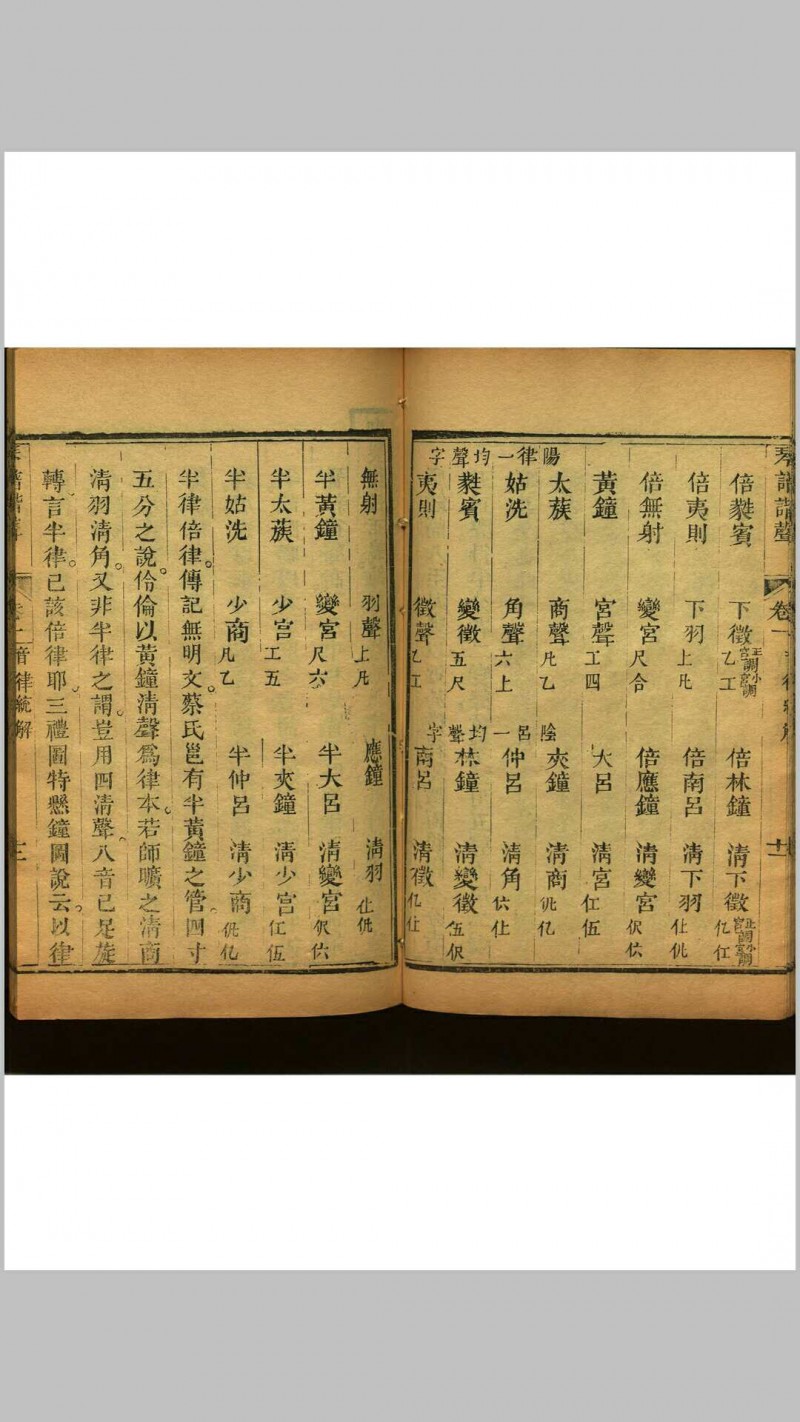 琴譜諧聲 卷一 音律統解 十二
陽律一均聲字
陰呂一均聲字
倍蕤賓 下徵 正調宮 小調宮 乙工 倍林鐘 清下徵 正調宮 小調宮 亿仜
倍夷則 下羽 上凡 倍南呂 清下羽 仩
倍無射 變宮 尺合 倍應鐘 清變宮 伬
黃鐘 宮聲 工四 大呂 清宮 仜伍
太蔟 商聲 凡乙 夾鐘 清商 亿
姑洗 角聲 六上 仲呂 清角 仩
蕤賓 變徵 五尺 林鐘 清變徵 伍伬
夷則 徵聲 乙工 南呂 清徵 亿
無射 羽聲 上凡 應鐘 清羽 仩
半黃鐘 變宮 尺六 半大呂 清變宮 伬
半太蔟 少宮 工五 半夾鐘 清少宮 仜伍
半姑洗 少商 凡乙 半仲呂 清少商 亿
半律倍律。傳記無明文。蔡氏邕有半黃鐘之管。四寸
五分之說。伶倫以黃鐘清聲爲律本。若師曠之清商
清羽清角。又非半律之謂。豈用四清聲。八音已足旋
轉言半律。已該倍律耶。三禮圖特懸鐘圖說云。以律
音律統解